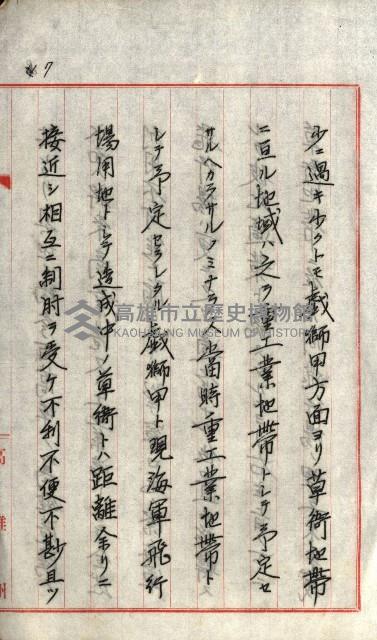 7
少ニ過キ少クトモ戯獅甲方面ヨリ草衙地帶
ニ亘ル地域ハ之ヲ重工業地帶トシテ予定セ
サルヘカラサルノミナラス當時重工業地帶ト
シテ予定セラレタル戯獅甲ト現海軍飛行
場用地トシテ造成中ノ草衙トハ距離余リニ
接近シ相互ニ制肘ヲ受ケ不利不便不尠且ツ
高雄州
高雄市立歷史博物館
KAOHSIUNG MUSEUM OF HISTORY